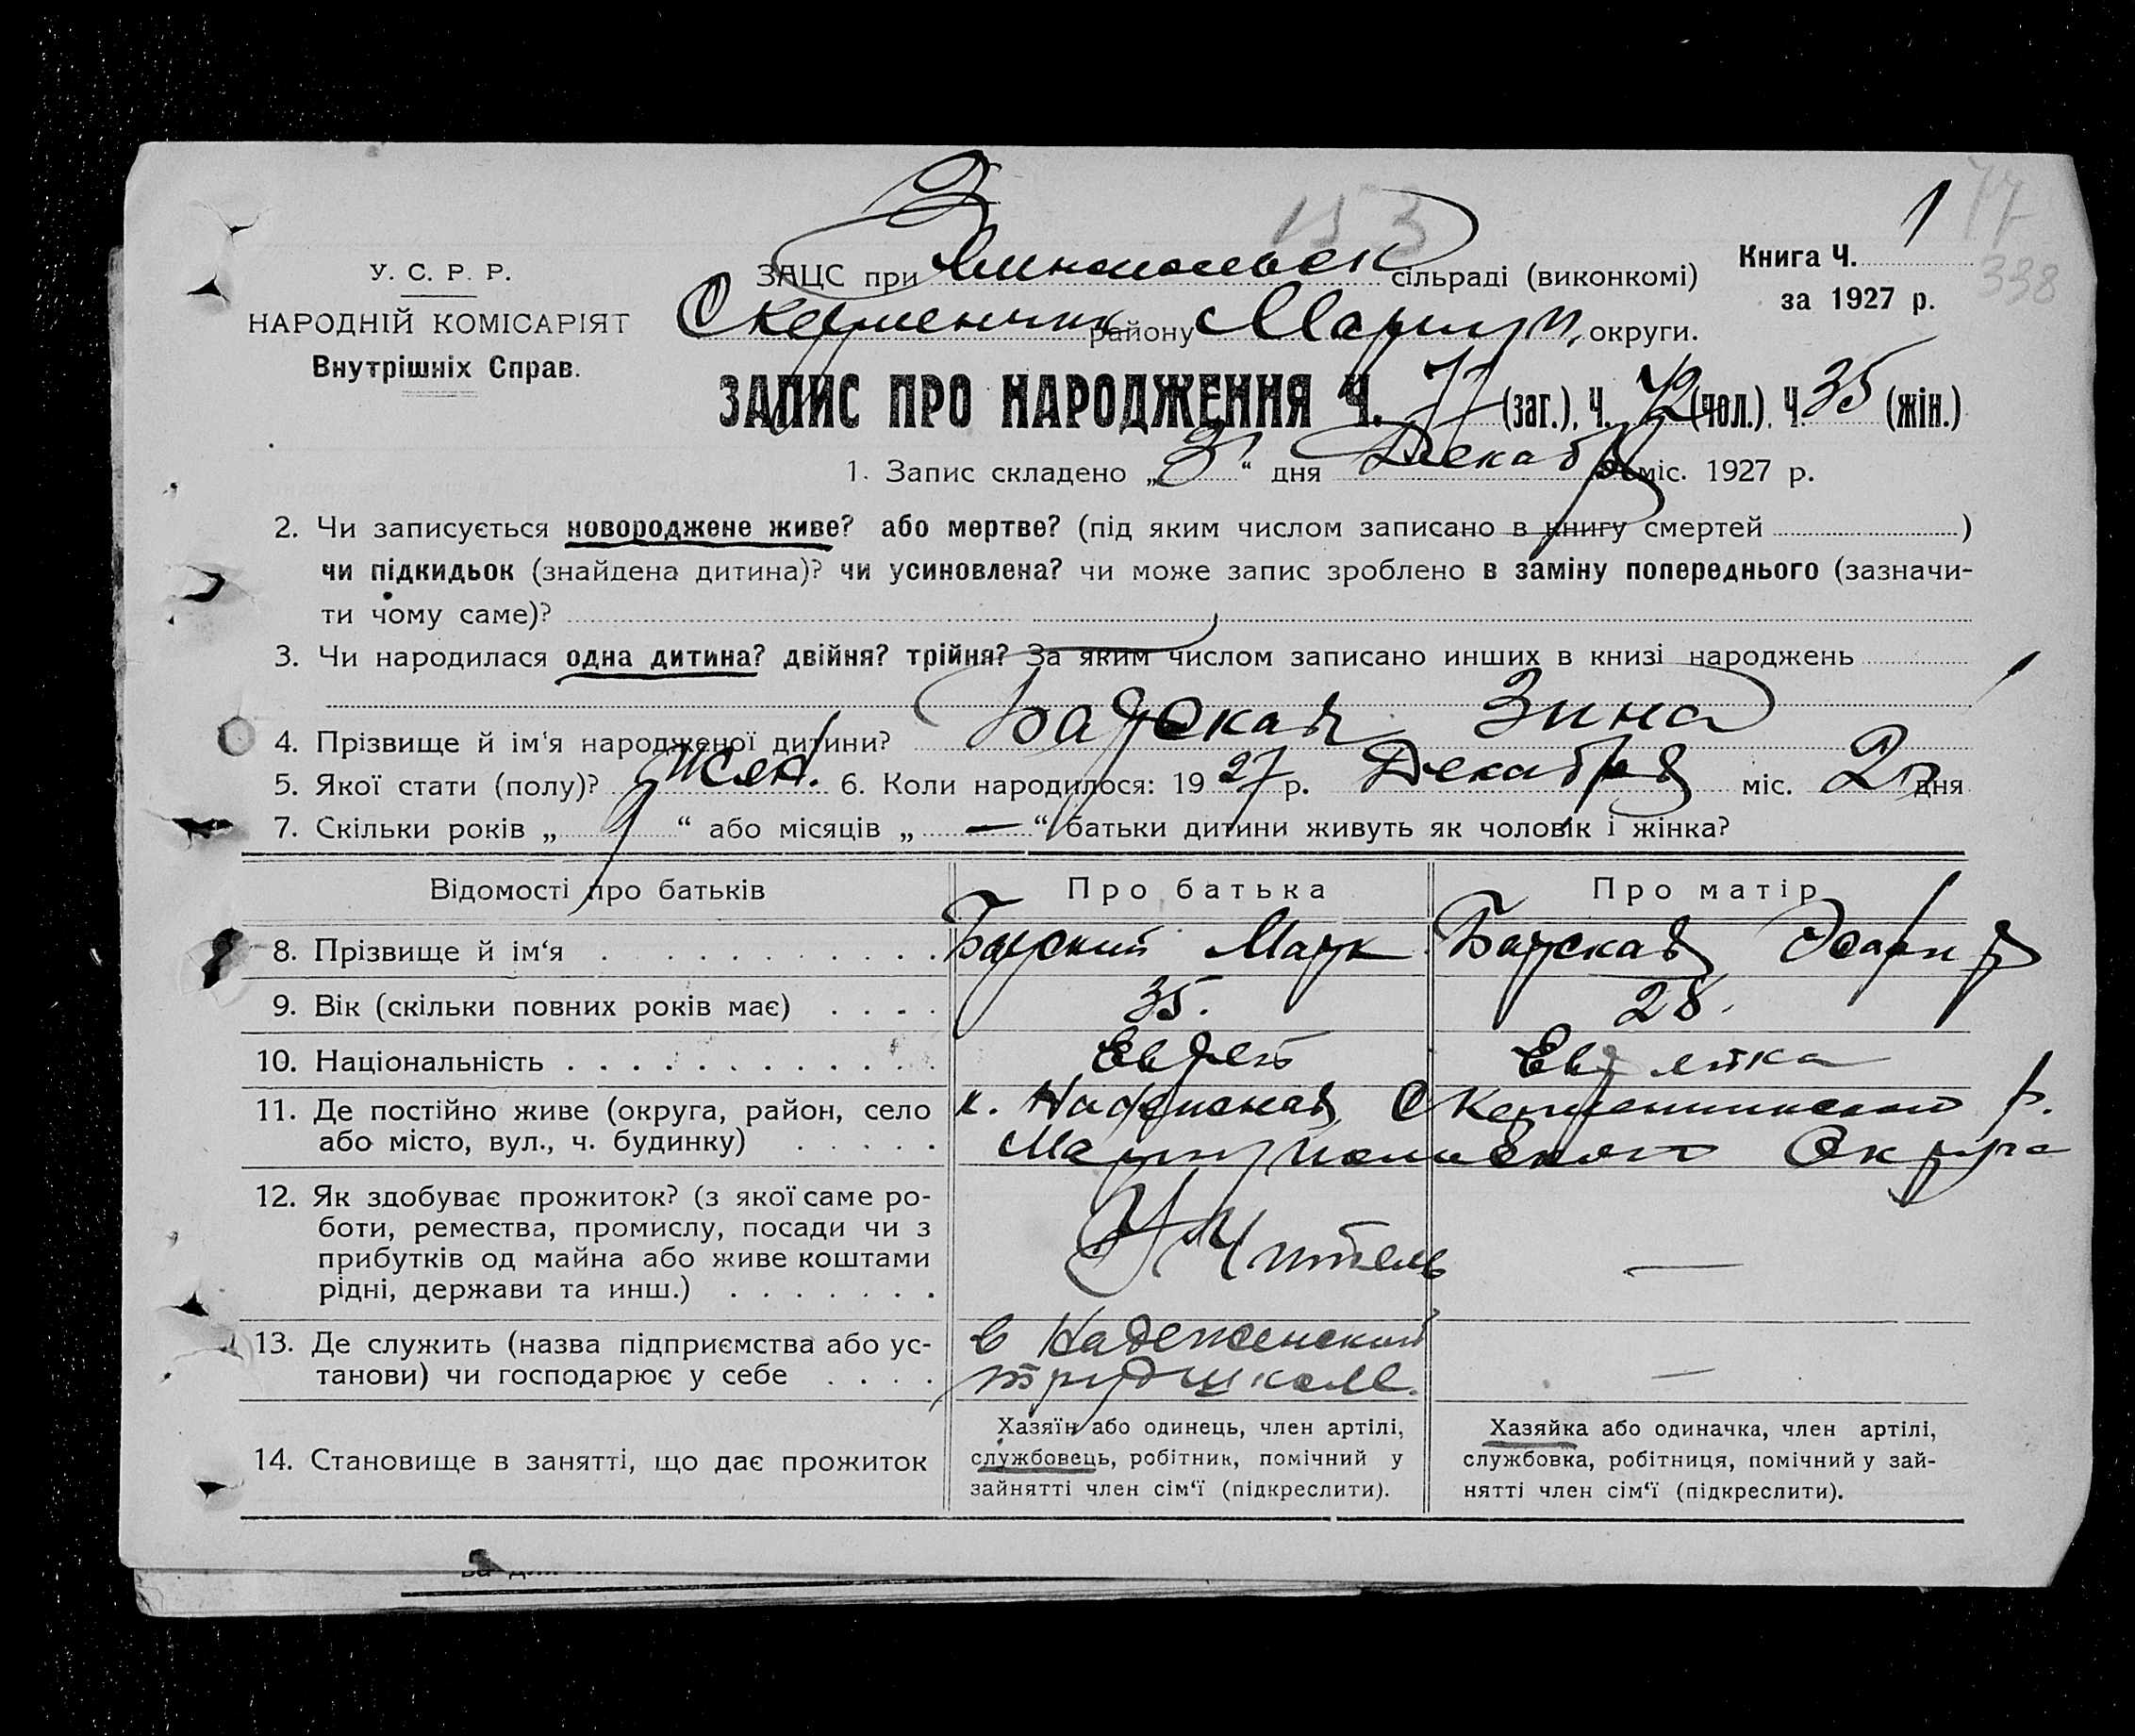 153
77
338
У. С. Р. Р.
НАРОДНІЙ КОМІСАРІЯТ
Внутрішніх Справ.
ЗАЦС при Зминопольск сільраді (виконкомі)
району Мариуп. округи.
Книга Ч. 1
за 1927 р.
ЗАПИС ПРО НАРОДЖЕННЯ Ч. 77 (заг.), Ч. 42 (чол.), Ч. 35 (жін.)
1. Запис складено „3“ дня Декабря міс. 1927 р.
2. Чи записується новороджене живе? або мертве? (під яким числом записано в книгу смертей )
чи підкидьок (знайдена дитина)? чи усиновлена? чи може запис зроблено в заміну попереднього (зазначи-
ти чому саме)?
3. Чи народилася одна дитина? двійня? трійня? За яким числом записано инших в книзі народжень
4. Прізвище й ім'я народженої дитини? Барская Зина
5. Якої стати (полу)? жен. 6. Коли народилося: 1927 р. Декабря міс. 2 дня
7. Скільки років „ “ або місяців „ — “ батьки дитини живуть як чоловік і жінка?
Відомості про батьків Про батька Про матір
8. Прізвище й ім‘я Барский Марк Барская
9. Вік (скільки повних років має) 35. 28.
10. Національність Еврей Еврейка
11. Де постійно живе (округа, район, село к. Надежная Р.
або місто, вул., ч. будинку) Мариупольского Округа
12. Як здобуває прожиток? (з якої саме ро-
боти, ремества, промислу, посади чи з
прибутків од майна або живе коштами
рідні, держави та инш.) Учитель —
13. Де служить (назва підприємства або ус- в Надеженской
танови) чи господарює у себе трудшколе. —
14. Становище в занятті, що дає прожиток
Хазяїн або одинець, член артілі,
службовець, робітник, помічний у
зайнятті член сім‘ї (підкреслити).
Хазяйка або одиначка, член артілі,
службовка, робітниця, помічний у зай-
нятті член сім‘ї (підкреслити).